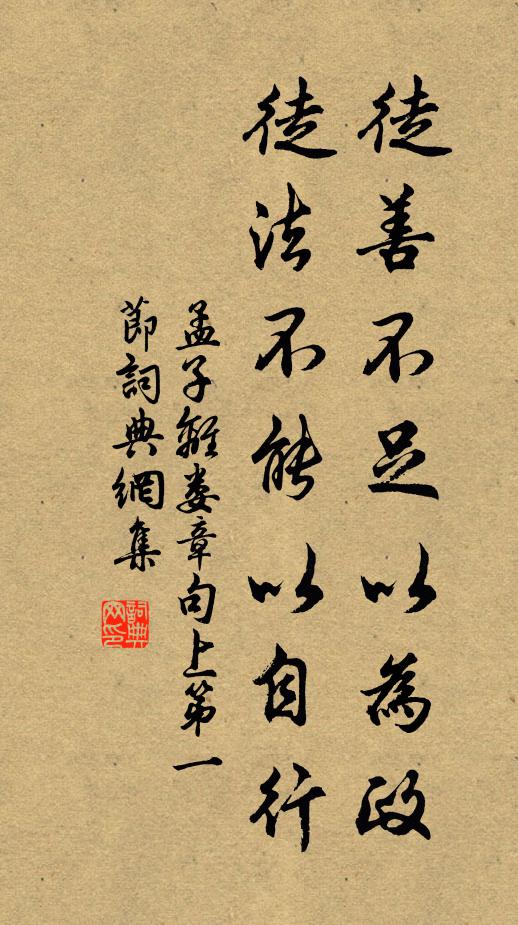 徒善不足以為政
徒法不能以自行
孟子離娄章句上第一
節詞典網集
詞典
网印